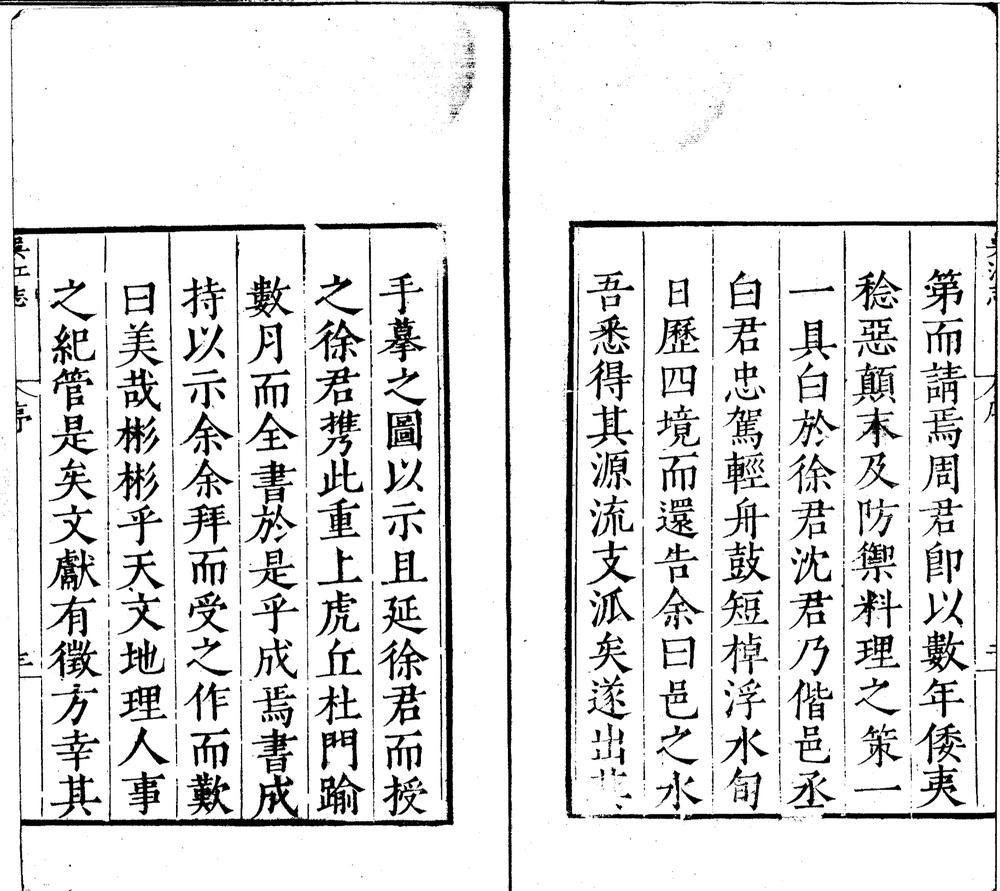 第而請焉周君卽以數年倭夷
稔惡顛末及防禦料理之策一
一具白於徐君沈君乃偕邑丞
白君忠駕輕舟鼓短棹浮水旬
日歷四境而還告余曰邑之水
吾悉得其源流支泒矣遂出其
手摹之圖以示且延徐君而授
之徐君携此重上虎丘杜門踰
數月而全書於是乎成焉書成
持以示余余拜而受之作而歎
曰美哉彬彬乎天文地理人事
之紀管是矣文獻有徵方幸其
吳江志
序
三